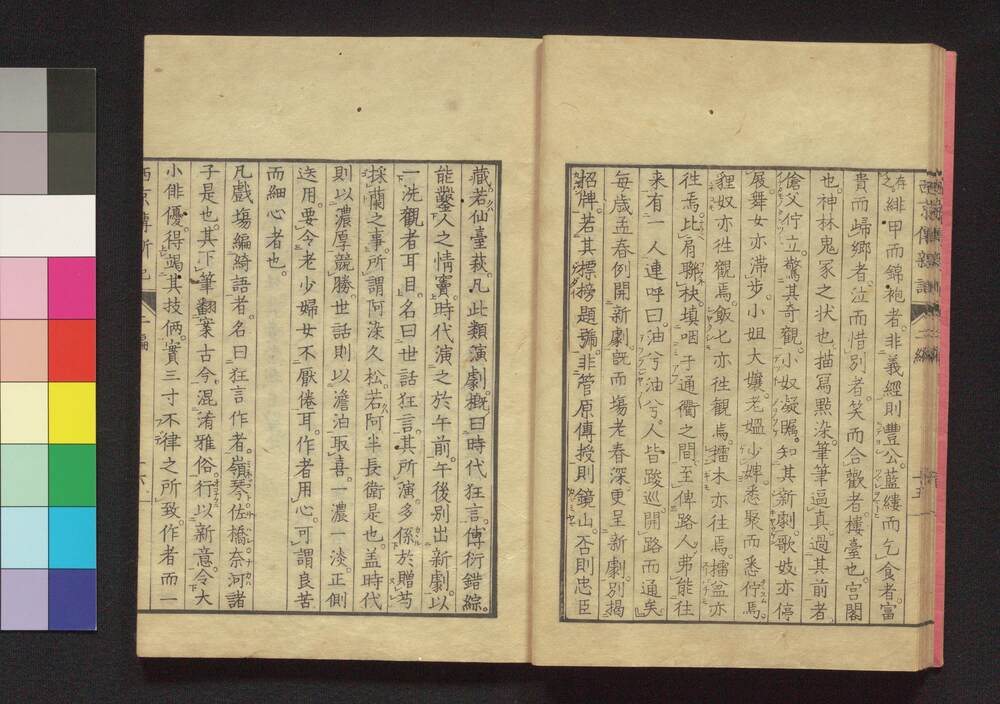 在緋甲而錦袍者。非義經則豐公。藍縷而乞食者。富
貴而歸鄉者。泣而惜別者。笑而合歡者。樓臺也。宮閣
也。神林鬼冢之狀也。描寫點染。筆筆逼真。過其前者。
傖父佇立。驚其奇觀。小奴凝矚。知其新劇。歌妓亦停
屐。舞女亦滯步。小姐大孃。老媼少婢。悉聚而悉佇焉。
貍奴亦徃觀焉。飯匕亦徃觀焉。擂木亦徃焉。擂盆亦
徃焉。比肩聯袂。填咽于通衢之間。至俾路人弗能徃
来。有一人連呼曰。油兮油兮。人皆踆巡。開路而通矣。
每歲孟春例開新劇。既而場老春深更呈新劇。別揭
招牌。若其標搒題號。非管原傳授則鏡山。否則忠臣
藏。若仙臺萩。凡此類演劇。概曰時代狂言。傳衍錯綜。
能鑿人之情竇。時代演之於午前。午後別出新劇。以
一洗觀者耳目。名曰世話狂言。其所演。多係於贈芍
採蘭之事。所謂阿染久松。若阿半長衛是也。盖時代
則以濃厚競勝。世話則以澹泊取喜。一濃一淡。正側
迭用。要令老少婦女不厭倦耳。作者用心。可謂良苦
而細心者也。
凡戲場編綺語者。名曰狂言作者。嶺琴。佐橋。奈河諸
子是也。其下筆翻案古今。混淆雅俗。行以新意。令大
小俳優。得竭其技倆。實三寸不律之所致。作者而一